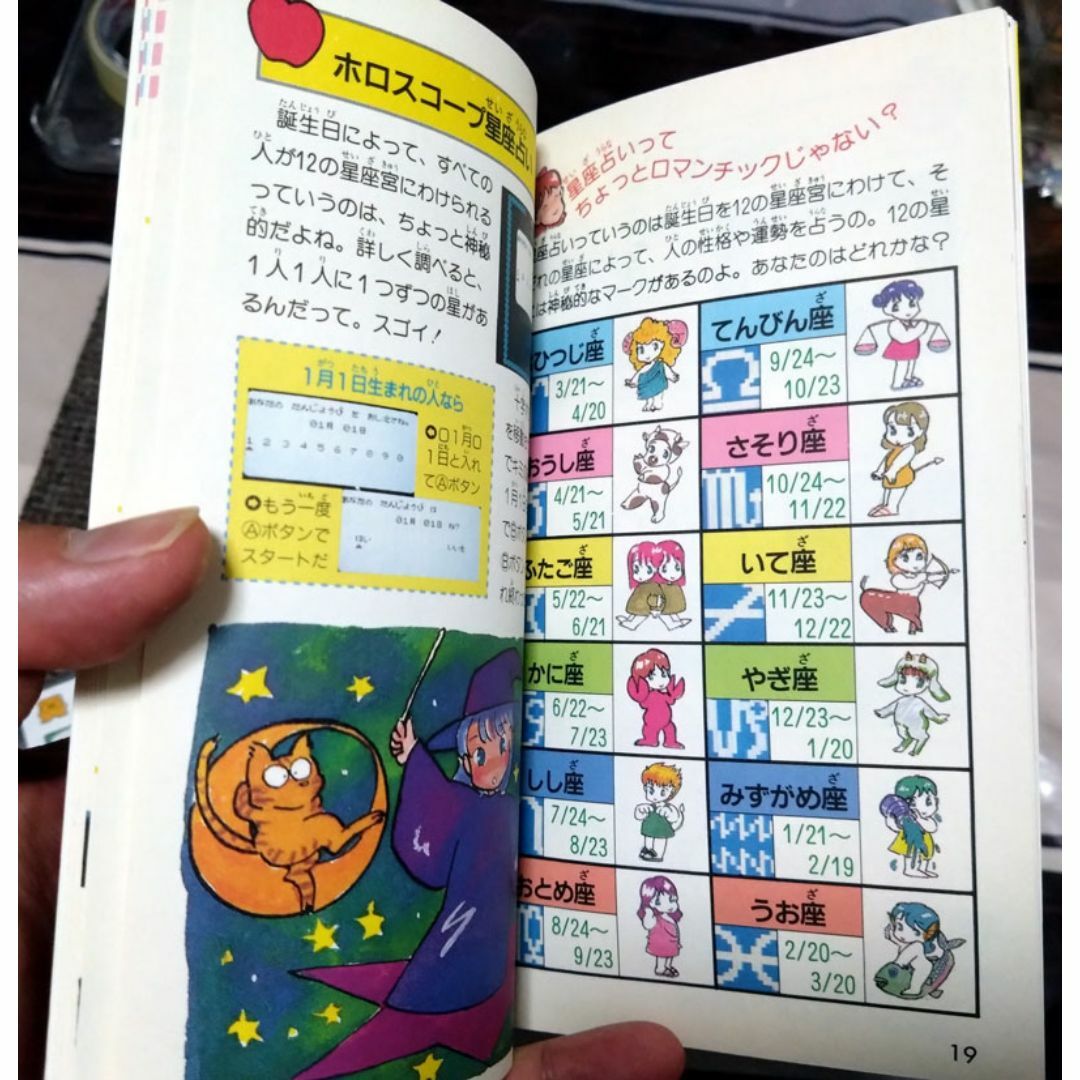 ホロスコープ星座占い
誕生日によって、すべての
人が12の星座宮にわけられる
っていうのは、ちょっと神秘
的だよね。詳しく調べると、
1人1人に1つずつの星があ
るんだって。スゴイ!
1月1日生まれの人なら
あなたの たんじょうび を おしえてね。
01月 01日
1 2 3 4 5 6 7 8 9 0
➡01月0
1日と入れ
てⒶボタン
➡もう一度
Ⓐボタンで
スタートだ
あなたの たんじょうび は
01月 01日 ね?
はい いいえ
を移動
でキミ
1月1
で
星座占いって
ちょっとロマンチックじゃない?
座占いっていうのは誕生日を12の星座宮にわけて、そ
れの星座によって、人の性格や運勢を占うの。12の星
は神秘的なマークがあるのよ。あなたのはどれかな?
ひつじ座
3/21〜
4/20
てんびん座
9/24〜
10/23
おうし座
4/21〜
5/21
さそり座
10/24〜
11/22
ふたご座
5/22〜
6/21
いて座
11/23〜
12/22
かに座
6/22〜
7/23
やぎ座
12/23〜
1/20
しし座
7/24〜
8/23
みずがめ座
1/21〜
2/19
おとめ座
8/24〜
9/23
うお座
2/20〜
3/20
19